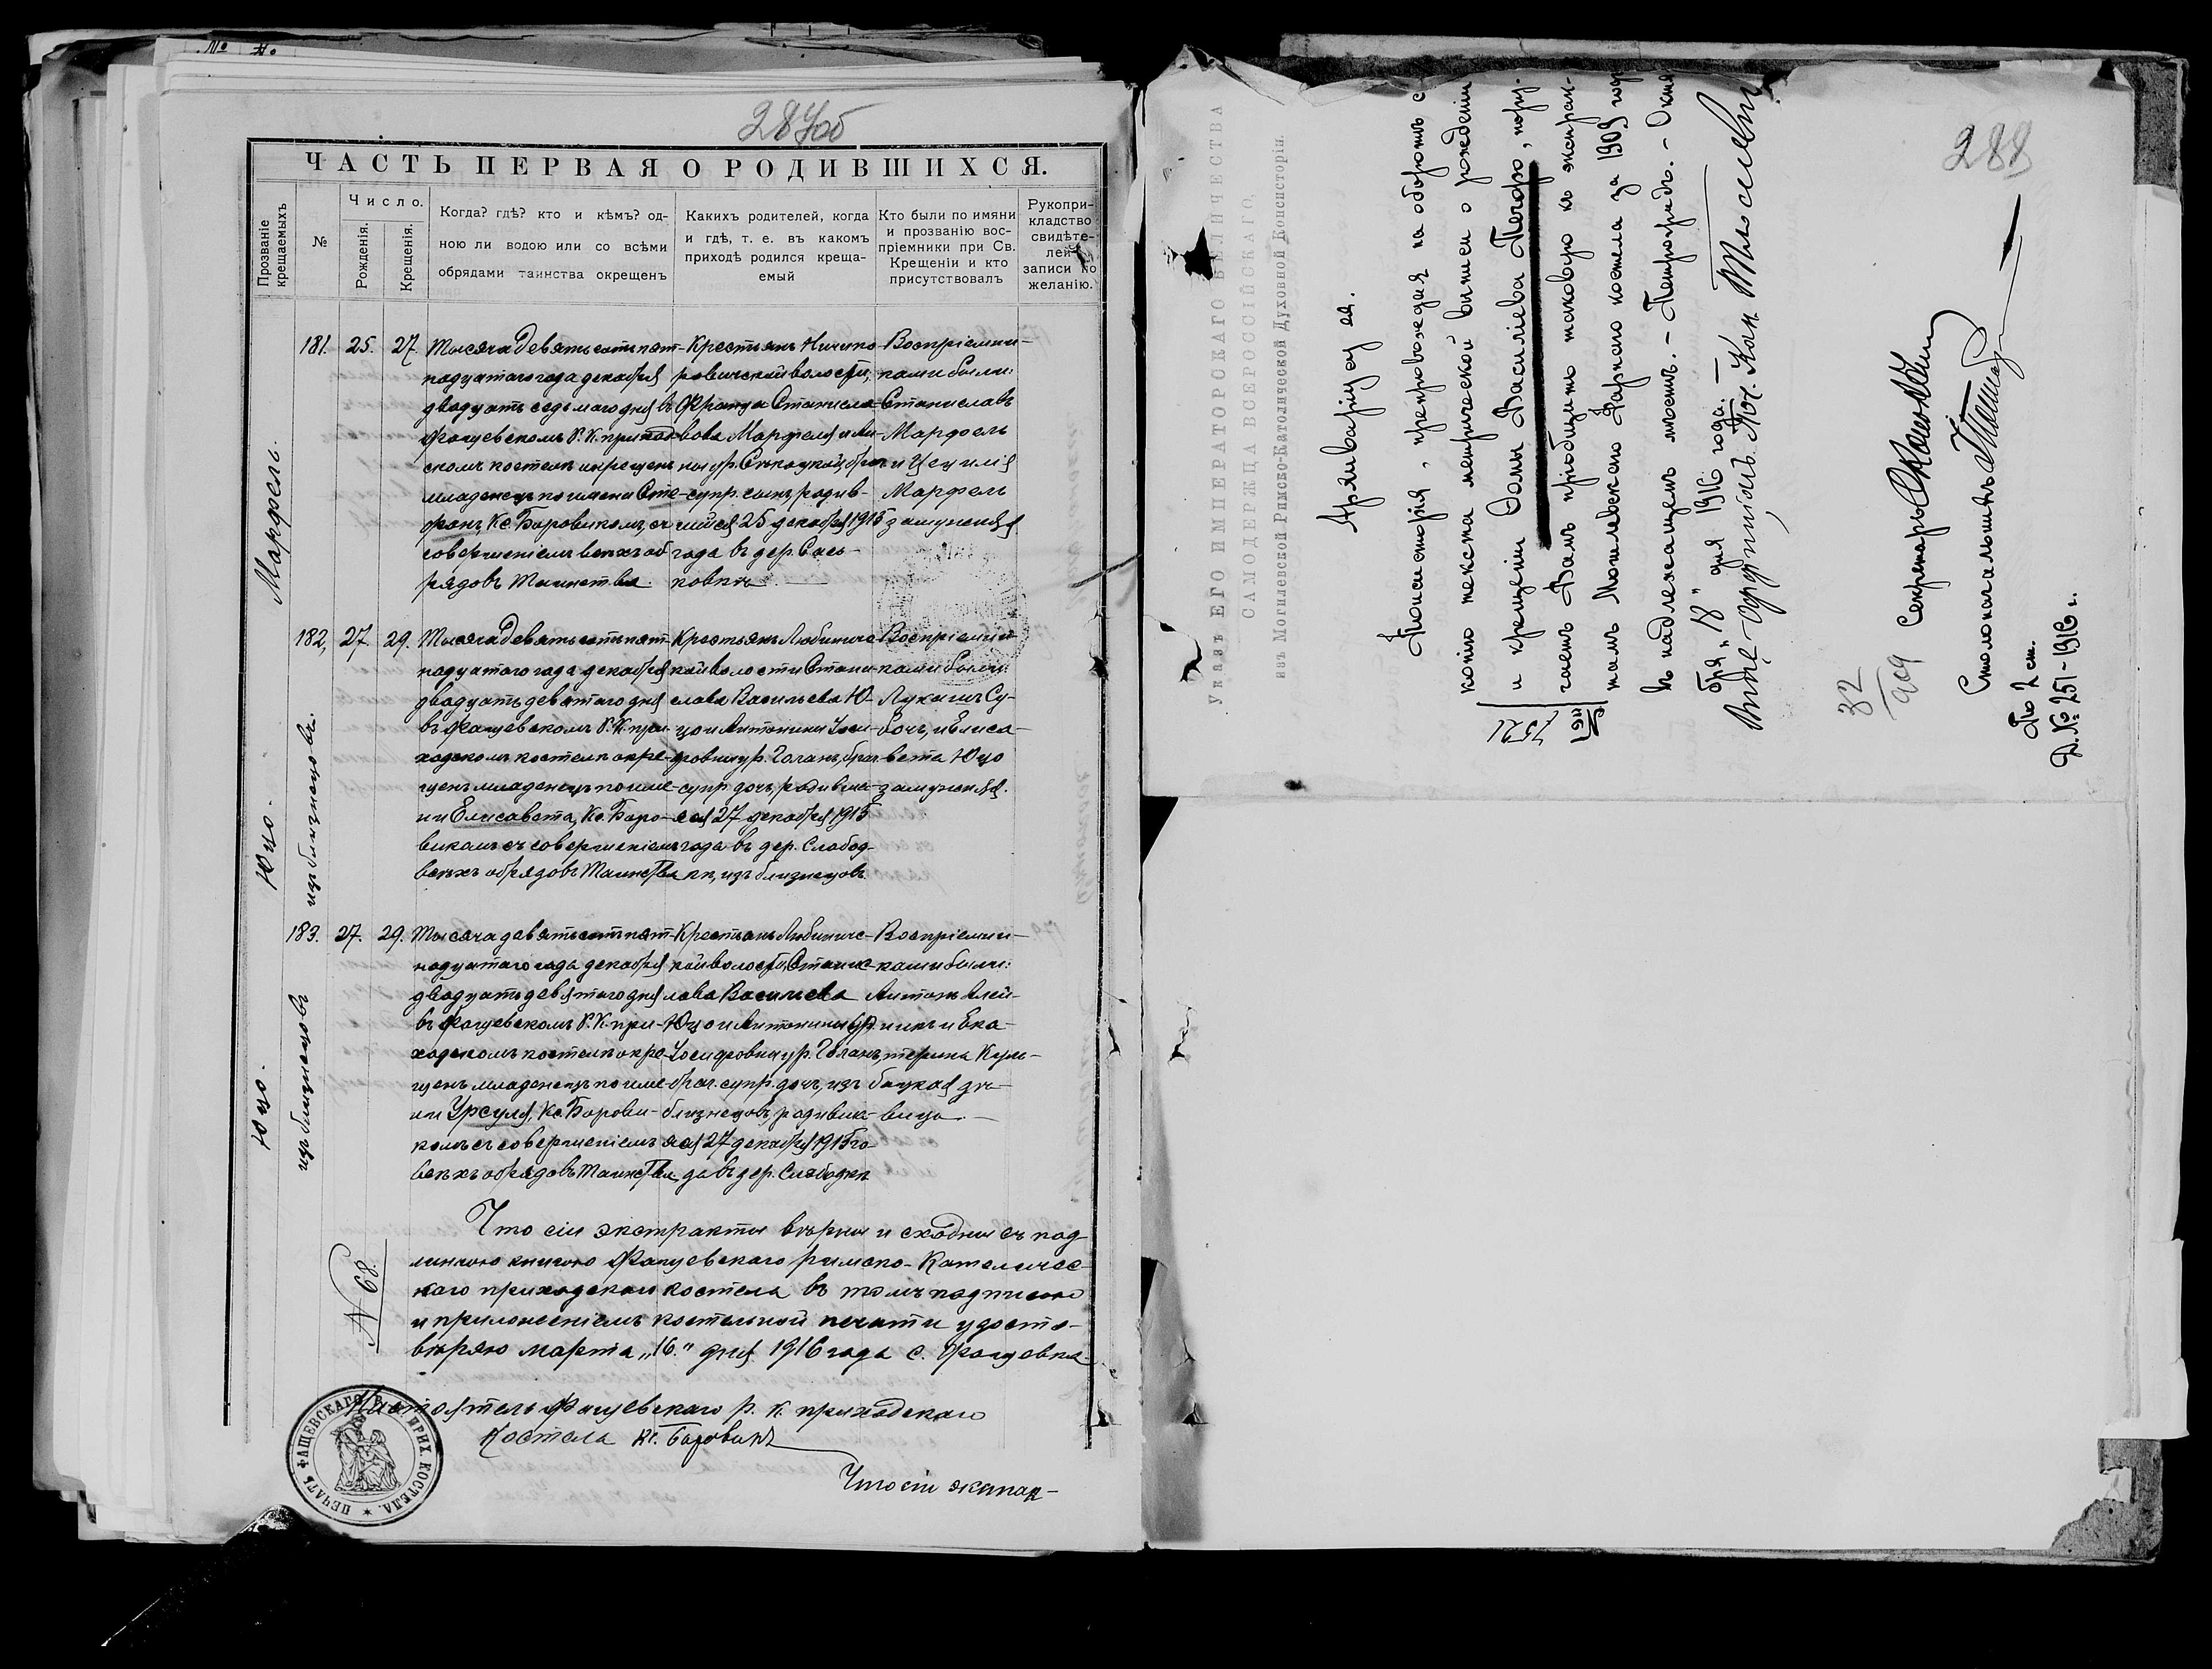 287об
ЧАСТЬ ПЕРВАЯ О РОДИВШИХСЯ.
Прозваніе крещаемыхъ
№
Число.
Рожденія.
Крещенія.
Когда? гдѣ? кто и кѣмъ? од-
ною ли водою или со всѣми
обрядами таинства окрещенъ
Какихъ родителей, когда
и гдѣ, т. е. въ какомъ
приходѣ родился креща-
емый
Кто были по имяни
и прозванію вос-
пріемники при Св.
Крещеніи и кто
присутствовалъ
Рукопри-
кладство
свидѣте-
лей
записи по
желанію.
Марфель.
181. 25. 27.
Тысяча девятьсотъ пят-
надцатаго года декабря
двадцать седьмаго дня въ
Фащевскомъ Р. К. приход-
скомъ костелѣ окрещенъ
младенецъ по имени Сте-
фанъ, Кс. Боровикомъ, съ
совершеніемъ всѣхъ об-
рядовъ Таинства.
Крестьянъ Ничипо-
ровичской волости,
Франца Станисла-
вова Марфеля и Ан-
ны ур.
супр. сынъ, родив-
шійся 25 декабря 1915
года въ дер.
Воспріемни-
ками были:
Станиславъ
Марфель
и Цецилія
Марфель
замужняя
Юцо.
изъ близнецовъ.
182. 27. 29.
Тысяча девятьсотъ пят-
надцатаго года декабря
двадцать девятаго дня
въ Фащевскомъ Р. К. при-
ходскомъ костелѣ окре-
щенъ младенецъ по име-
ни Елисавета, Кс. Боро-
викомъ съ совершеніемъ
всѣхъ обрядовъ Таинства
Крестьянъ Любинич-
кой волости Стани-
слава Васильева Ю-
цо и Антонины Іоси-
фовны ур. Голакъ, брач.
супр. дочь, родивша-
яся 27 декабря 1915
года въ дер. Слабод-
кѣ, изъ близнецовъ
Воспріемни-
ками были:
Лукашъ Су-
бочъ, и Елиса-
вета Юцо
замужняя.
Юцо.
изъ близнецовъ
183. 27. 29.
Тысяча девятьсотъ пят-
надцатаго года декабря
двадцать девятаго дня
въ Фащевскомъ Р. К. при-
ходскомъ костелѣ окре-
щенъ младенецъ по име-
ни Урсуля, Кс. Борови-
комъ съ совершеніемъ
всѣхъ обрядовъ Таинства
Крестьянъ Любинич-
кой волости, Станис-
лава Васильева
Юцо и Антонины
Іосифовны ур. Голакъ,
брач. супр. дочь, изъ
близнецовъ, родивша-
яся 27 декабря 1915 го-
да въ дер. Слабодкѣ
Воспріемни-
ками были:
Антонъ Алей-
никъ и Ека-
терина Куль-
бацкая дѣ-
вица.
№ 68.
Что сіи экстракты вѣрны и сходны съ под-
линною книгою Фащевскаго римско-Католичес-
каго приходскаго костела въ томъ подписью
и приложеніемъ костельной печати удосто-
вѣряю марта „16.“ дня 1916 года с. Фащевка.
Настоятель Фащевскаго р. к. приходскаго
костела Кс. Боровикъ
Что сіи экстрак-
ПЕЧАТЬ ФАЩЕВСКАГО Р. К. ПРИХ. КОСТЕЛА.
288
Указъ ЕГО ИМПЕРАТОРСКАГО ВЕЛИЧЕСТВА
САМОДЕРЖЦА ВСЕРОССІЙСКАГО,
изъ Могилевской Римско-Католической Духовной Консисторіи.
Архиваріусу ея.
Консисторія, препровождая на оборотѣ с
копію текста метрической выписи о рожденіи
и крещеніи Фомы Васильева Печоро, пору-
чаетъ Вамъ пріобщить таковую къ экстрак-
тамъ Могилевскаго Фарнаго костела за 1909 год
въ надлежащемъ мѣстѣ. – Петроградъ. – Октя
бря „18“ дня 1916 года. –
№ 7521
Вице-Оффиціалъ
Секретарь
Столоначальникъ
32
По 2 ст.
Д. № 251-1916 г.